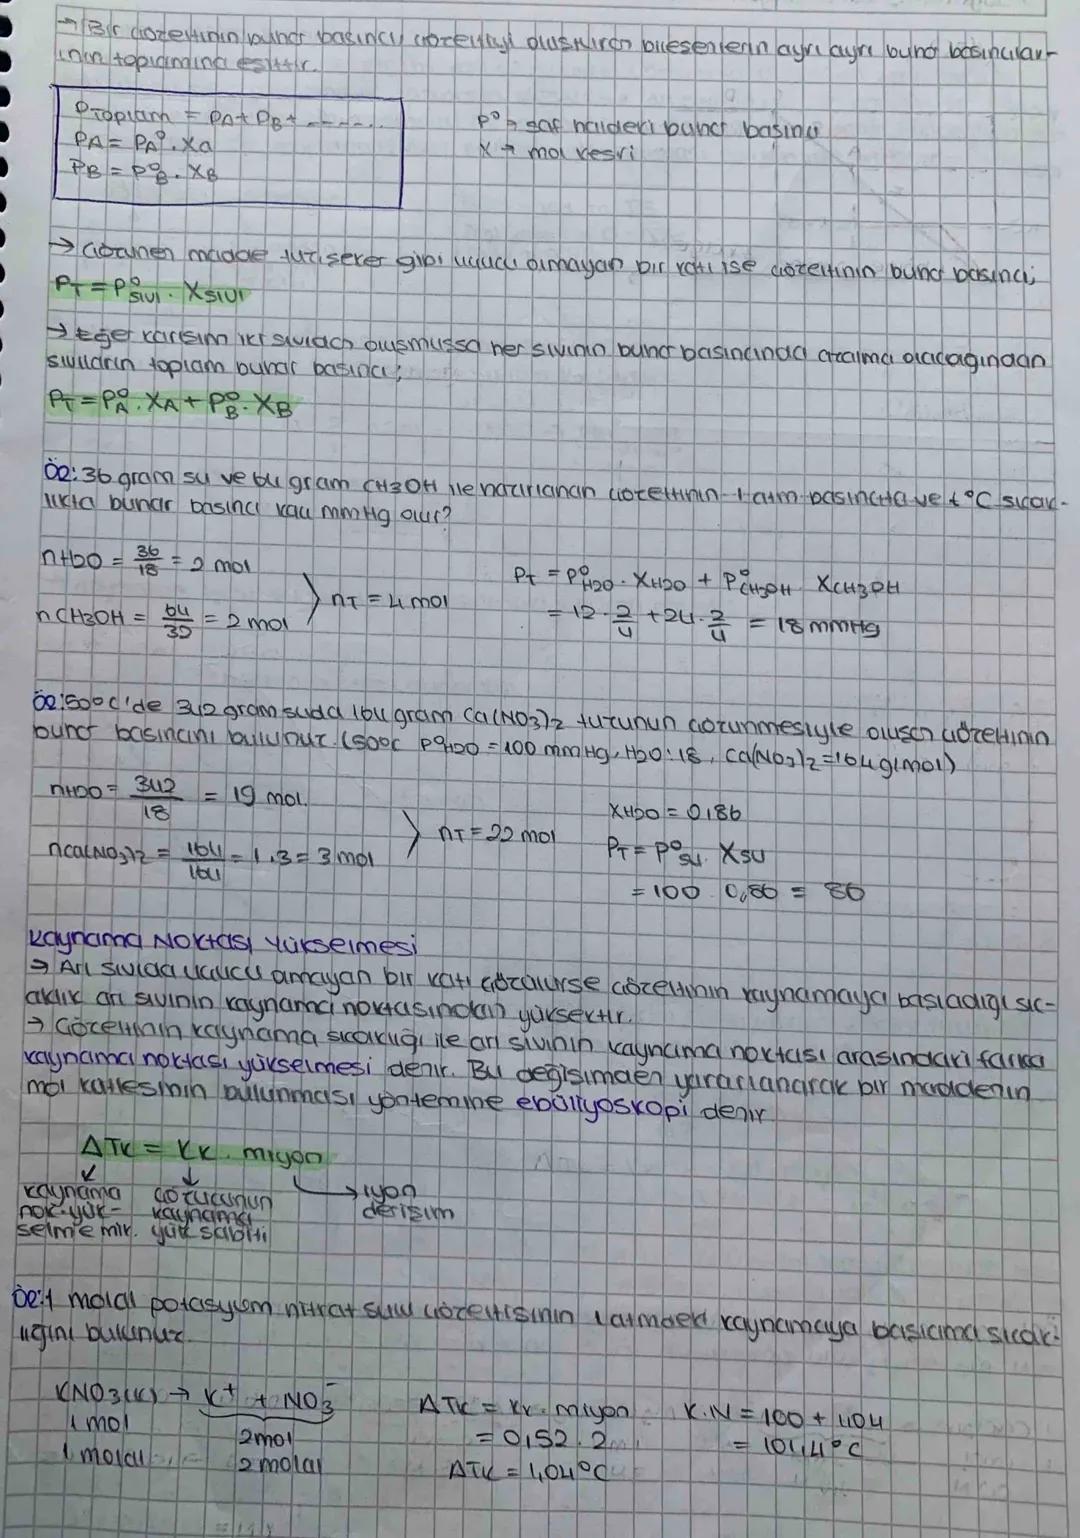 → Bir çözeltinin buhar basıncı, çözeltiyi oluşturan bileşenlerin ayrı ayrı buhar basınçları-
nın toplamına eşittir.
PToplam = PA + PB + -------
PA = PA°. Xa
PB = P°B . XB
P° → saf haldeki buhar basıncı
X → mol kesri
→ Çözünen madde tuz, şeker gibi uçucu olmayan bir katı ise çözeltinin buhar basıncı;
PT = P°SIVI . XSIVI
→ Eğer karışım iki sıvıdan oluşmuşsa her sıvının buhar basıncında azalma olacağından
sıvıların toplam buhar basıncı;
PT = P°A . XA + P°B . XB
Ör: 36 gram su ve 64 gram CH3OH ile hazırlanan çözeltinin 1 atm basınçta ve t °C sıcak-
lıkta buhar basıncı kaç mmHg olur?
nH2O = 36/18 = 2 mol
nCH3OH = 64/32 = 2 mol
nT = 4 mol
PT = P°H2O . XH2O + P°CH3OH . XCH3OH
= 12 . 2/4 + 24 . 2/4 = 18 mmHg
Ör: 50°C'de 342 gram suda 164 gram Ca(NO3)2 tuzunun çözünmesiyle oluşan çözeltinin
buhar basıncını bulunuz. (50°C P°H2O = 100 mmHg, H2O: 18, Ca(NO3)2 = 164 g/mol)
nH2O = 342/18 = 19 mol
nCa(NO3)2 = 164/164 = 1.3 = 3 mol
nT = 22 mol
XH2O = 0,86
PT = P°su . Xsu
= 100 . 0,86 = 86
Kaynama Noktası Yükselmesi
→ Arı sıvıda uçucu olmayan bir katı çözülürse çözeltinin kaynamaya başladığı sıc-
aklık arı sıvının kaynama noktasından yüksektir.
→ Çözeltinin kaynama sıcaklığı ile arı sıvının kaynama noktası arasındaki farka
kaynama noktası yükselmesi denir. Bu değişimden yararlanarak bir maddenin
mol kütlesinin bulunması yöntemine ebülliyoskopi denir
ΔTK = KK . miyon
kaynama
nok. yük-
selme mik.
çözücünün
kaynama
yük sabiti
iyon
derişim
Ör: 1 molal potasyum nitrat sulu çözeltisinin 1 atmdeki kaynamaya başlama sıcak-
lığını bulunuz.
KNO3(k) → K+ + NO3-
1 mol
2 mol
1 molal
2 molal
ΔTK = KK . miyon
= 0,52 . 2
ΔTK = 1,04°C
K.N = 100 + 1,04
= 101,4°C